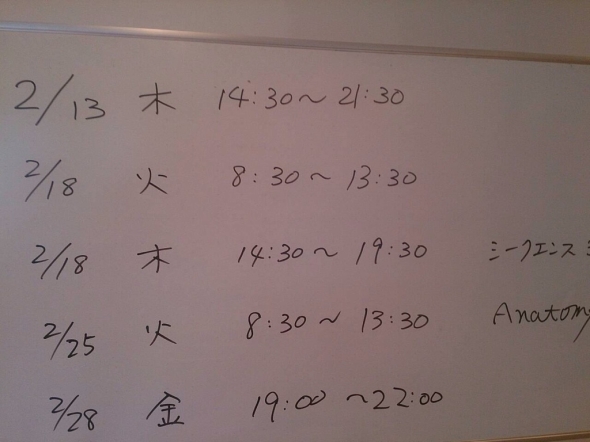 2/13 木 14:30~21:30
2/18 火 8:30~13:30
2/18 木 14:30~19:30 シークエンス
2/25 火 8:30~13:30 Anatomy
2/28 金 19:00~22:00